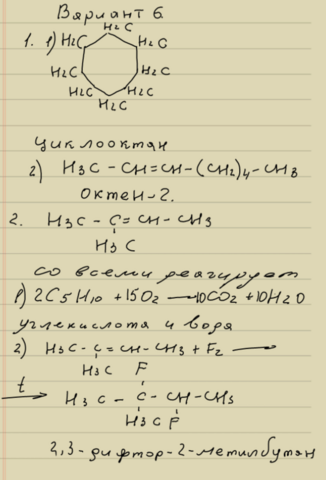 Вариант 6
H2C
1. 1) H2C H2C
H2C H2C
H2C H2C
H2C
Циклооктан
2) H3C - CH = CH - (CH2)4 - CH3
Октен-2.
2. H3C - C = CH - CH3
H3C
со всеми реагирует
1) 2C5H10 + 15O2 → 10CO2 + 10H2O
углекислота и вода
2) H3C - C = CH - CH3 + F2 →
H3C F
t → H3C - C - CH - CH3
H3C F
2,3-дифтор-2-метилбутан